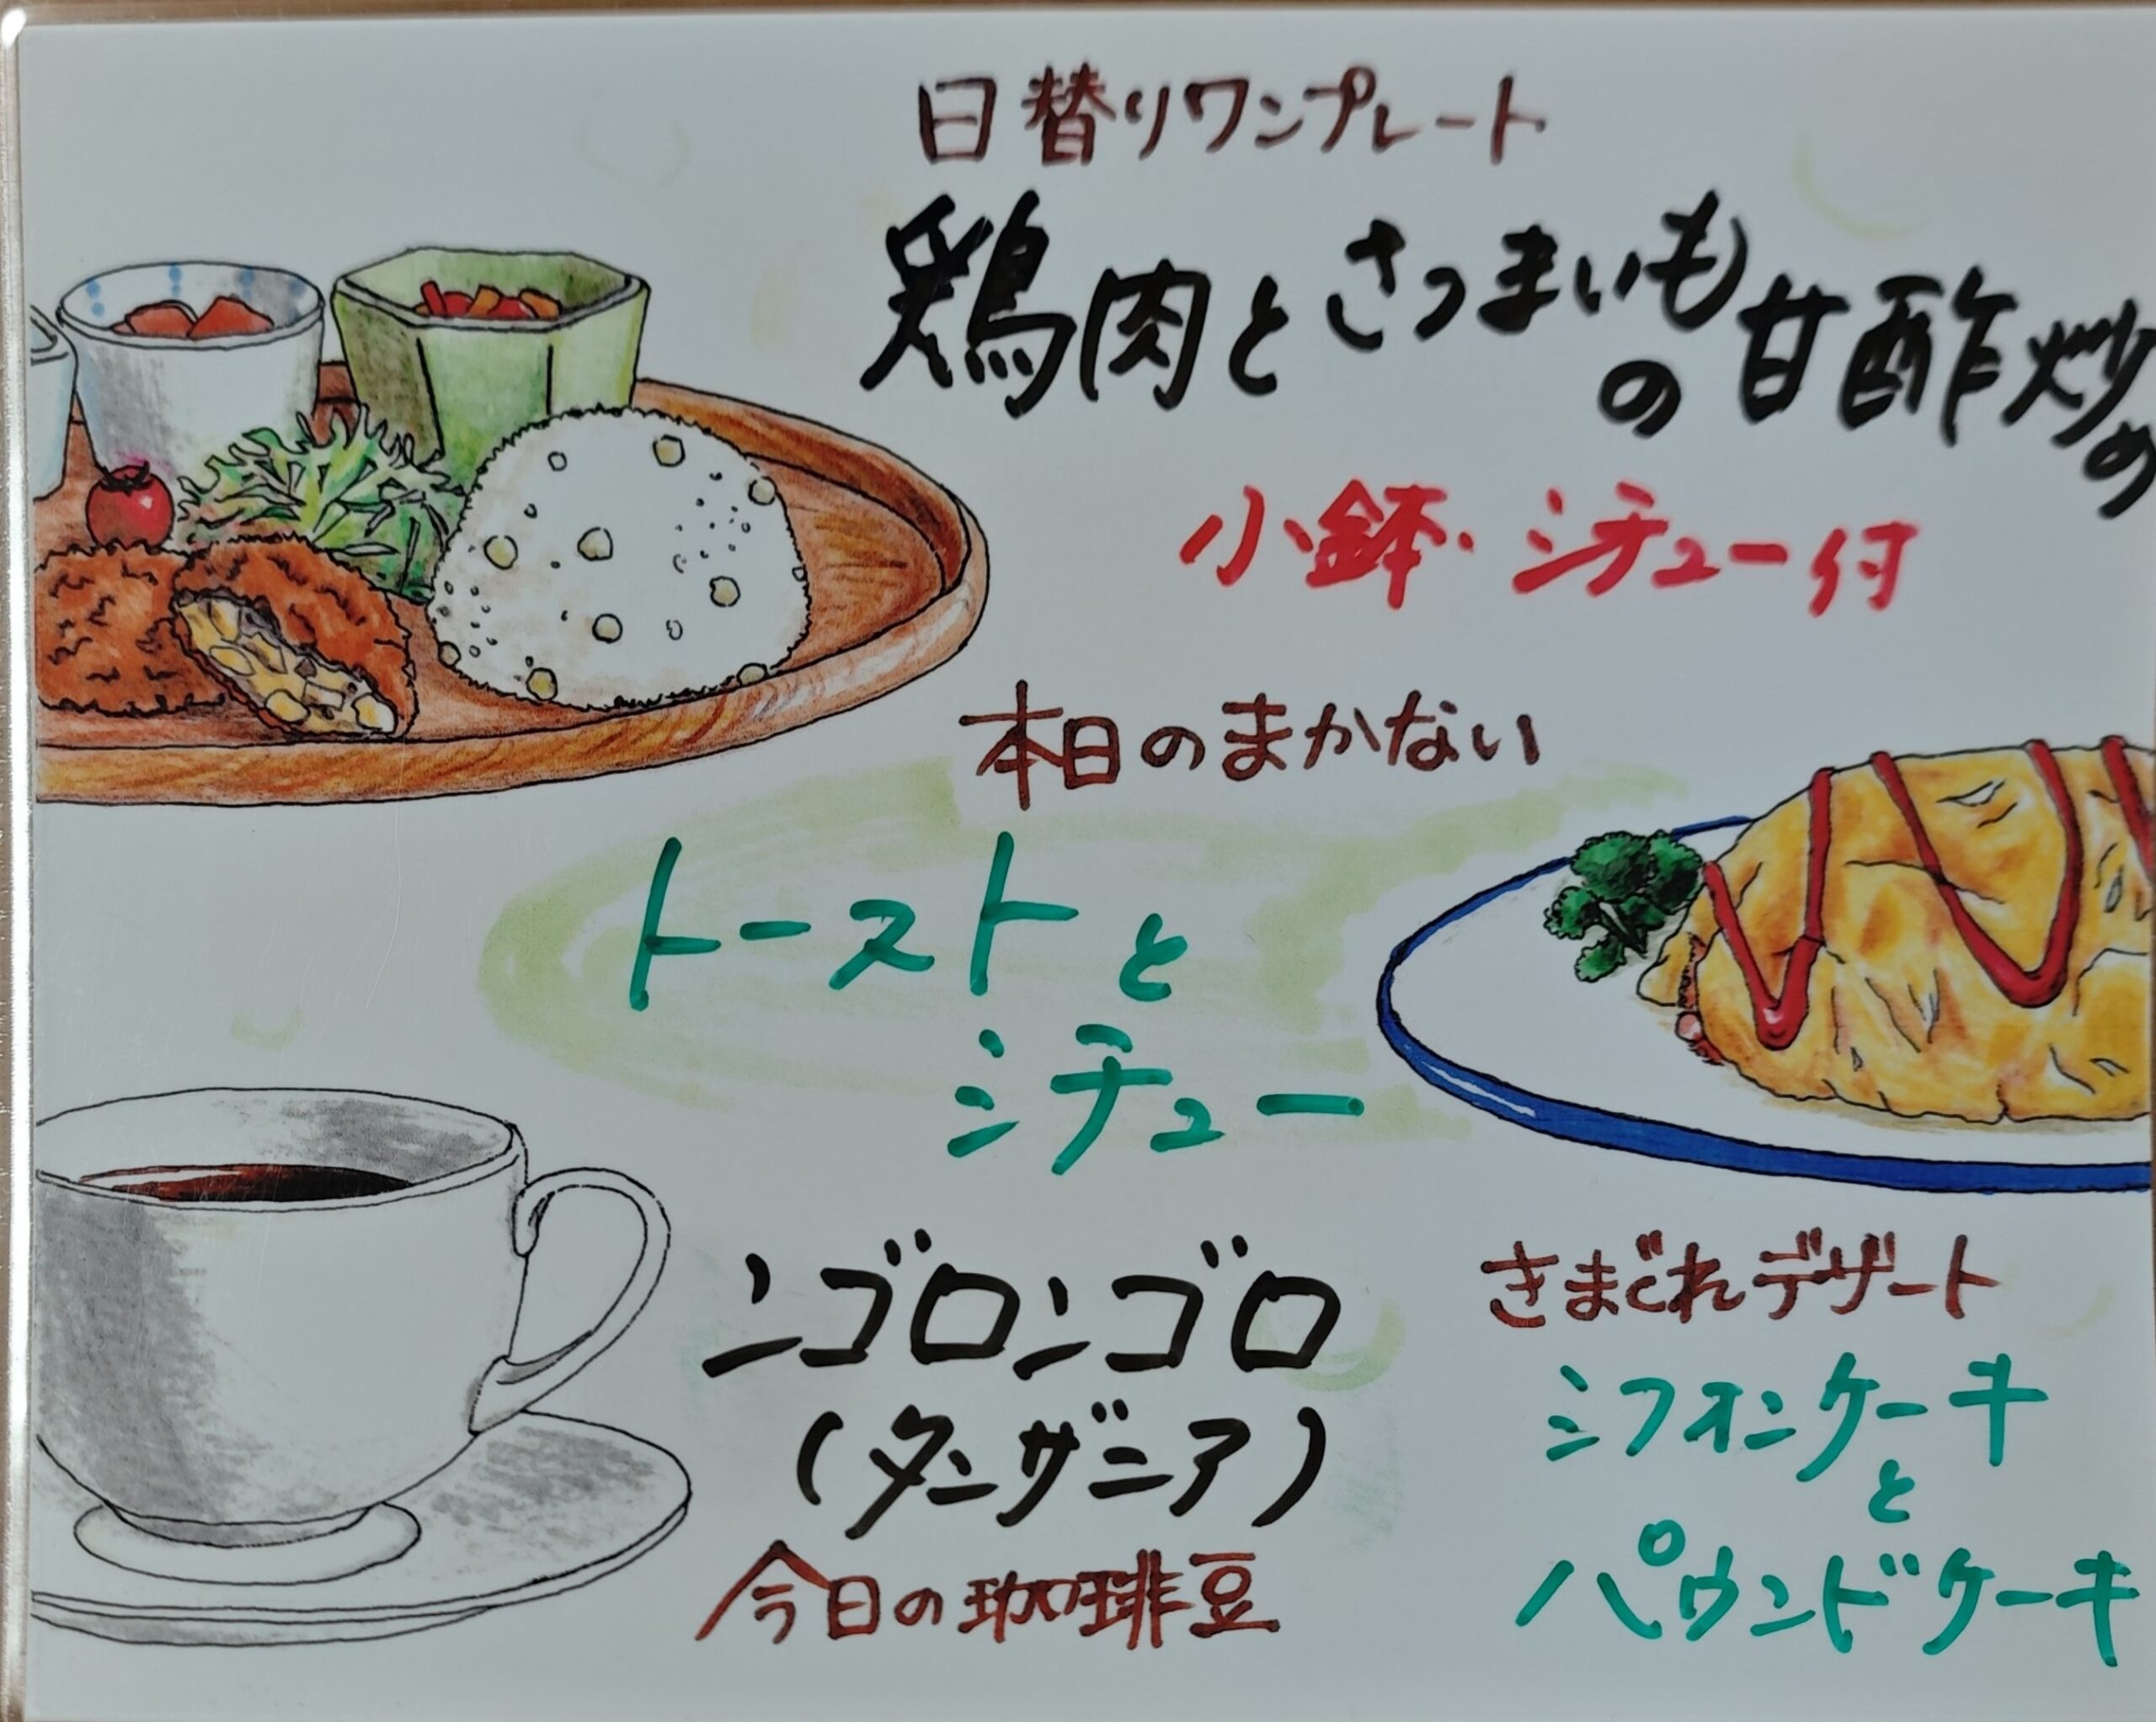 日替りワンプレート
鶏肉とさつまいも
の甘酢炒め
小鉢・シチュー付
本日のまかない
トーストと
シチュー
ンゴロンゴロ
(タンザニア)
今日の珈琲豆
きまぐれデザート
シフォンケーキ
と
パウンドケーキ